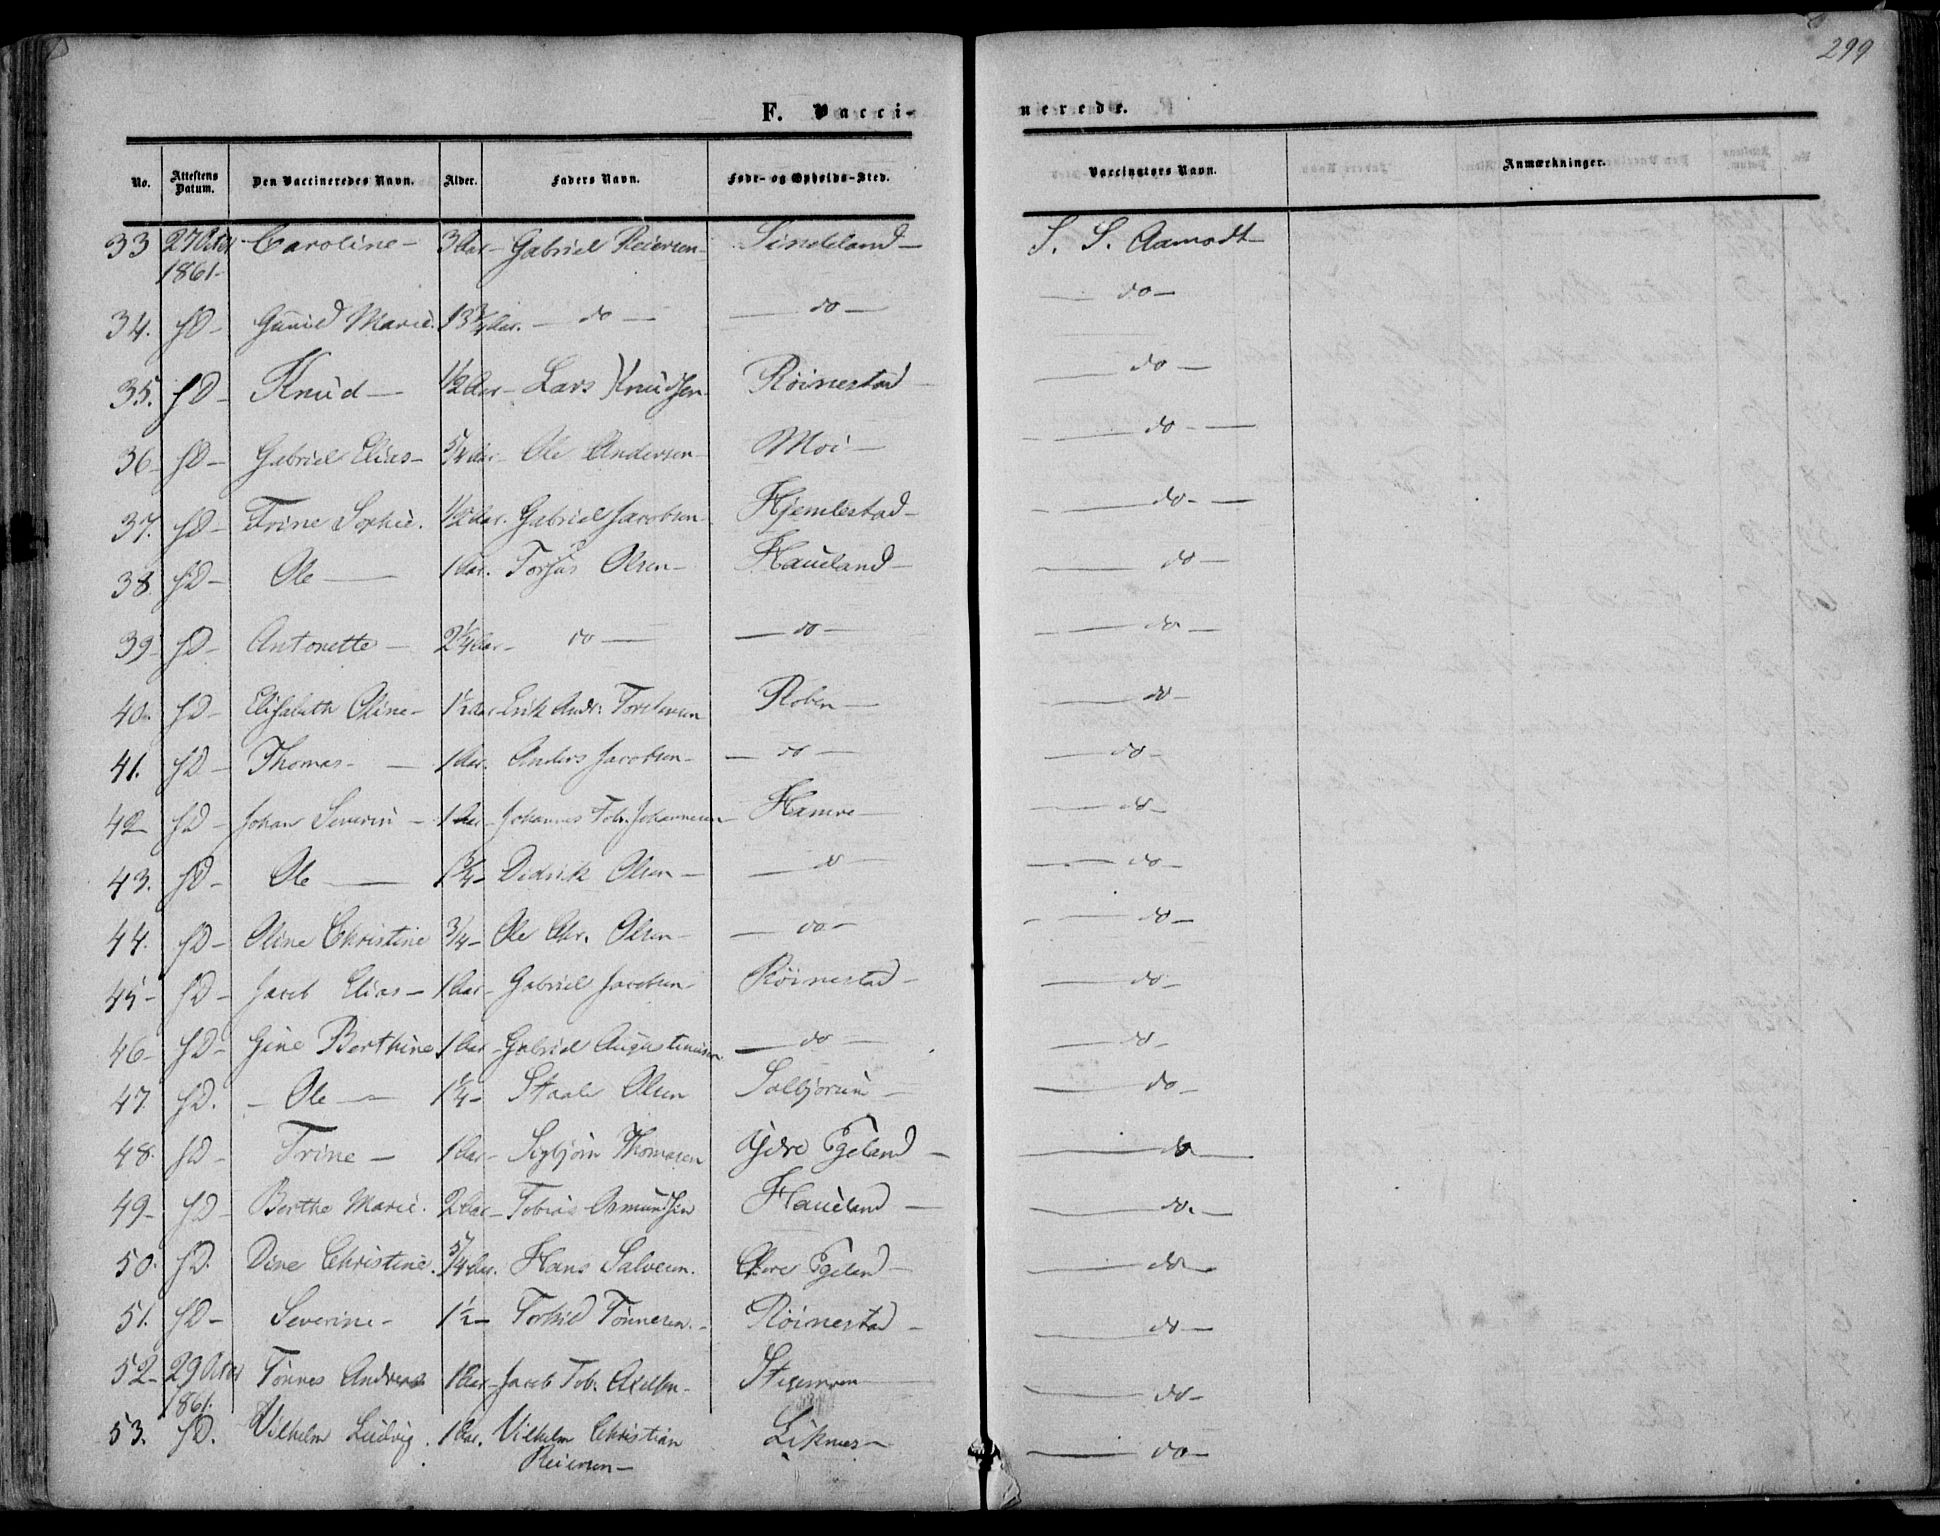 299
F. Vacci- nerede.
No. Attestens Datum. Den Vaccineredes Navn. Alder. Faders Navn. Føde- og Opholds-Sted. Vaccinators Navn. Anmærkninger.
33 27 Octbr 1861- Caroline- 3 Aar- Gabriel Reiersen- Sindeland- S. S. Aamodt-
34. sD- Gunild Marie. 13/4 Aar. - do - - do - - do -
35. sD- Knud- 1/2 Aar- Lars Knudsen- Röinestad - - do -
36- sD- Gabriel Elias- 5/4 Aar- Ole Andersen- Moi- - do -
37. sD- Trine Sophie. 1/2 Aar. Gabriel Jacobsen- Hjemlestad- - do -
38. sD- Ole- 1 Aar. Torjus Olsen- Haueland- - do -
39- sD- Antonette- 2 1/4 Aar- do - - do - - do -
40. sD- Elisabeth Oline- 1 1/2 Aar Erik Andr. Torstensen Roben- - do -
41. sD- Thomas- 1 Aar. Anders Jacobsen- - do - - do -
42- sD- Johan Severin- 1 Aar- Johannes Tob. Johannesen- Hamre- - do -
43. sD- Ole- 1 3/4- Didrik Olsen- - do - - do -
44. sD- Oline Christine 3/4- Ole Chr. Olsen- - do - - do -
45- sD- Jacob Elias- 1 Aar- Gabriel Jacobsen- Röinestad- - do -
46- sD- Gine Berthine 1 Aar- Gabriel Augustinusen - do - - do -
47. sD. - Ole- 1 1/4- Staale Olsen Solbjorum- - do -
48. sD- Trine- 1 Aar- Sigbjörn Thomasen Ydre Egeland- - do -
49- sD- Berthe Marie. 2 Aar- Tobias Asmundsen Haueland- - do. -
50. sD. Dine Christine. 5/4 Aar. Hans Salvesen. Övre Egeland- - do -
51. sD- Severine- 1 1/2- Torkild Tönnesen.- Röinestad- - do -
52- 29 Octbr 1861. Tönnes Andreas 1 Aar- Jacob Tob. Axelsen- - do -
53. sD. Vilhelm Ludvig. 1 Aar. Vilhelm Christian Reiersen- Liknes- - do -